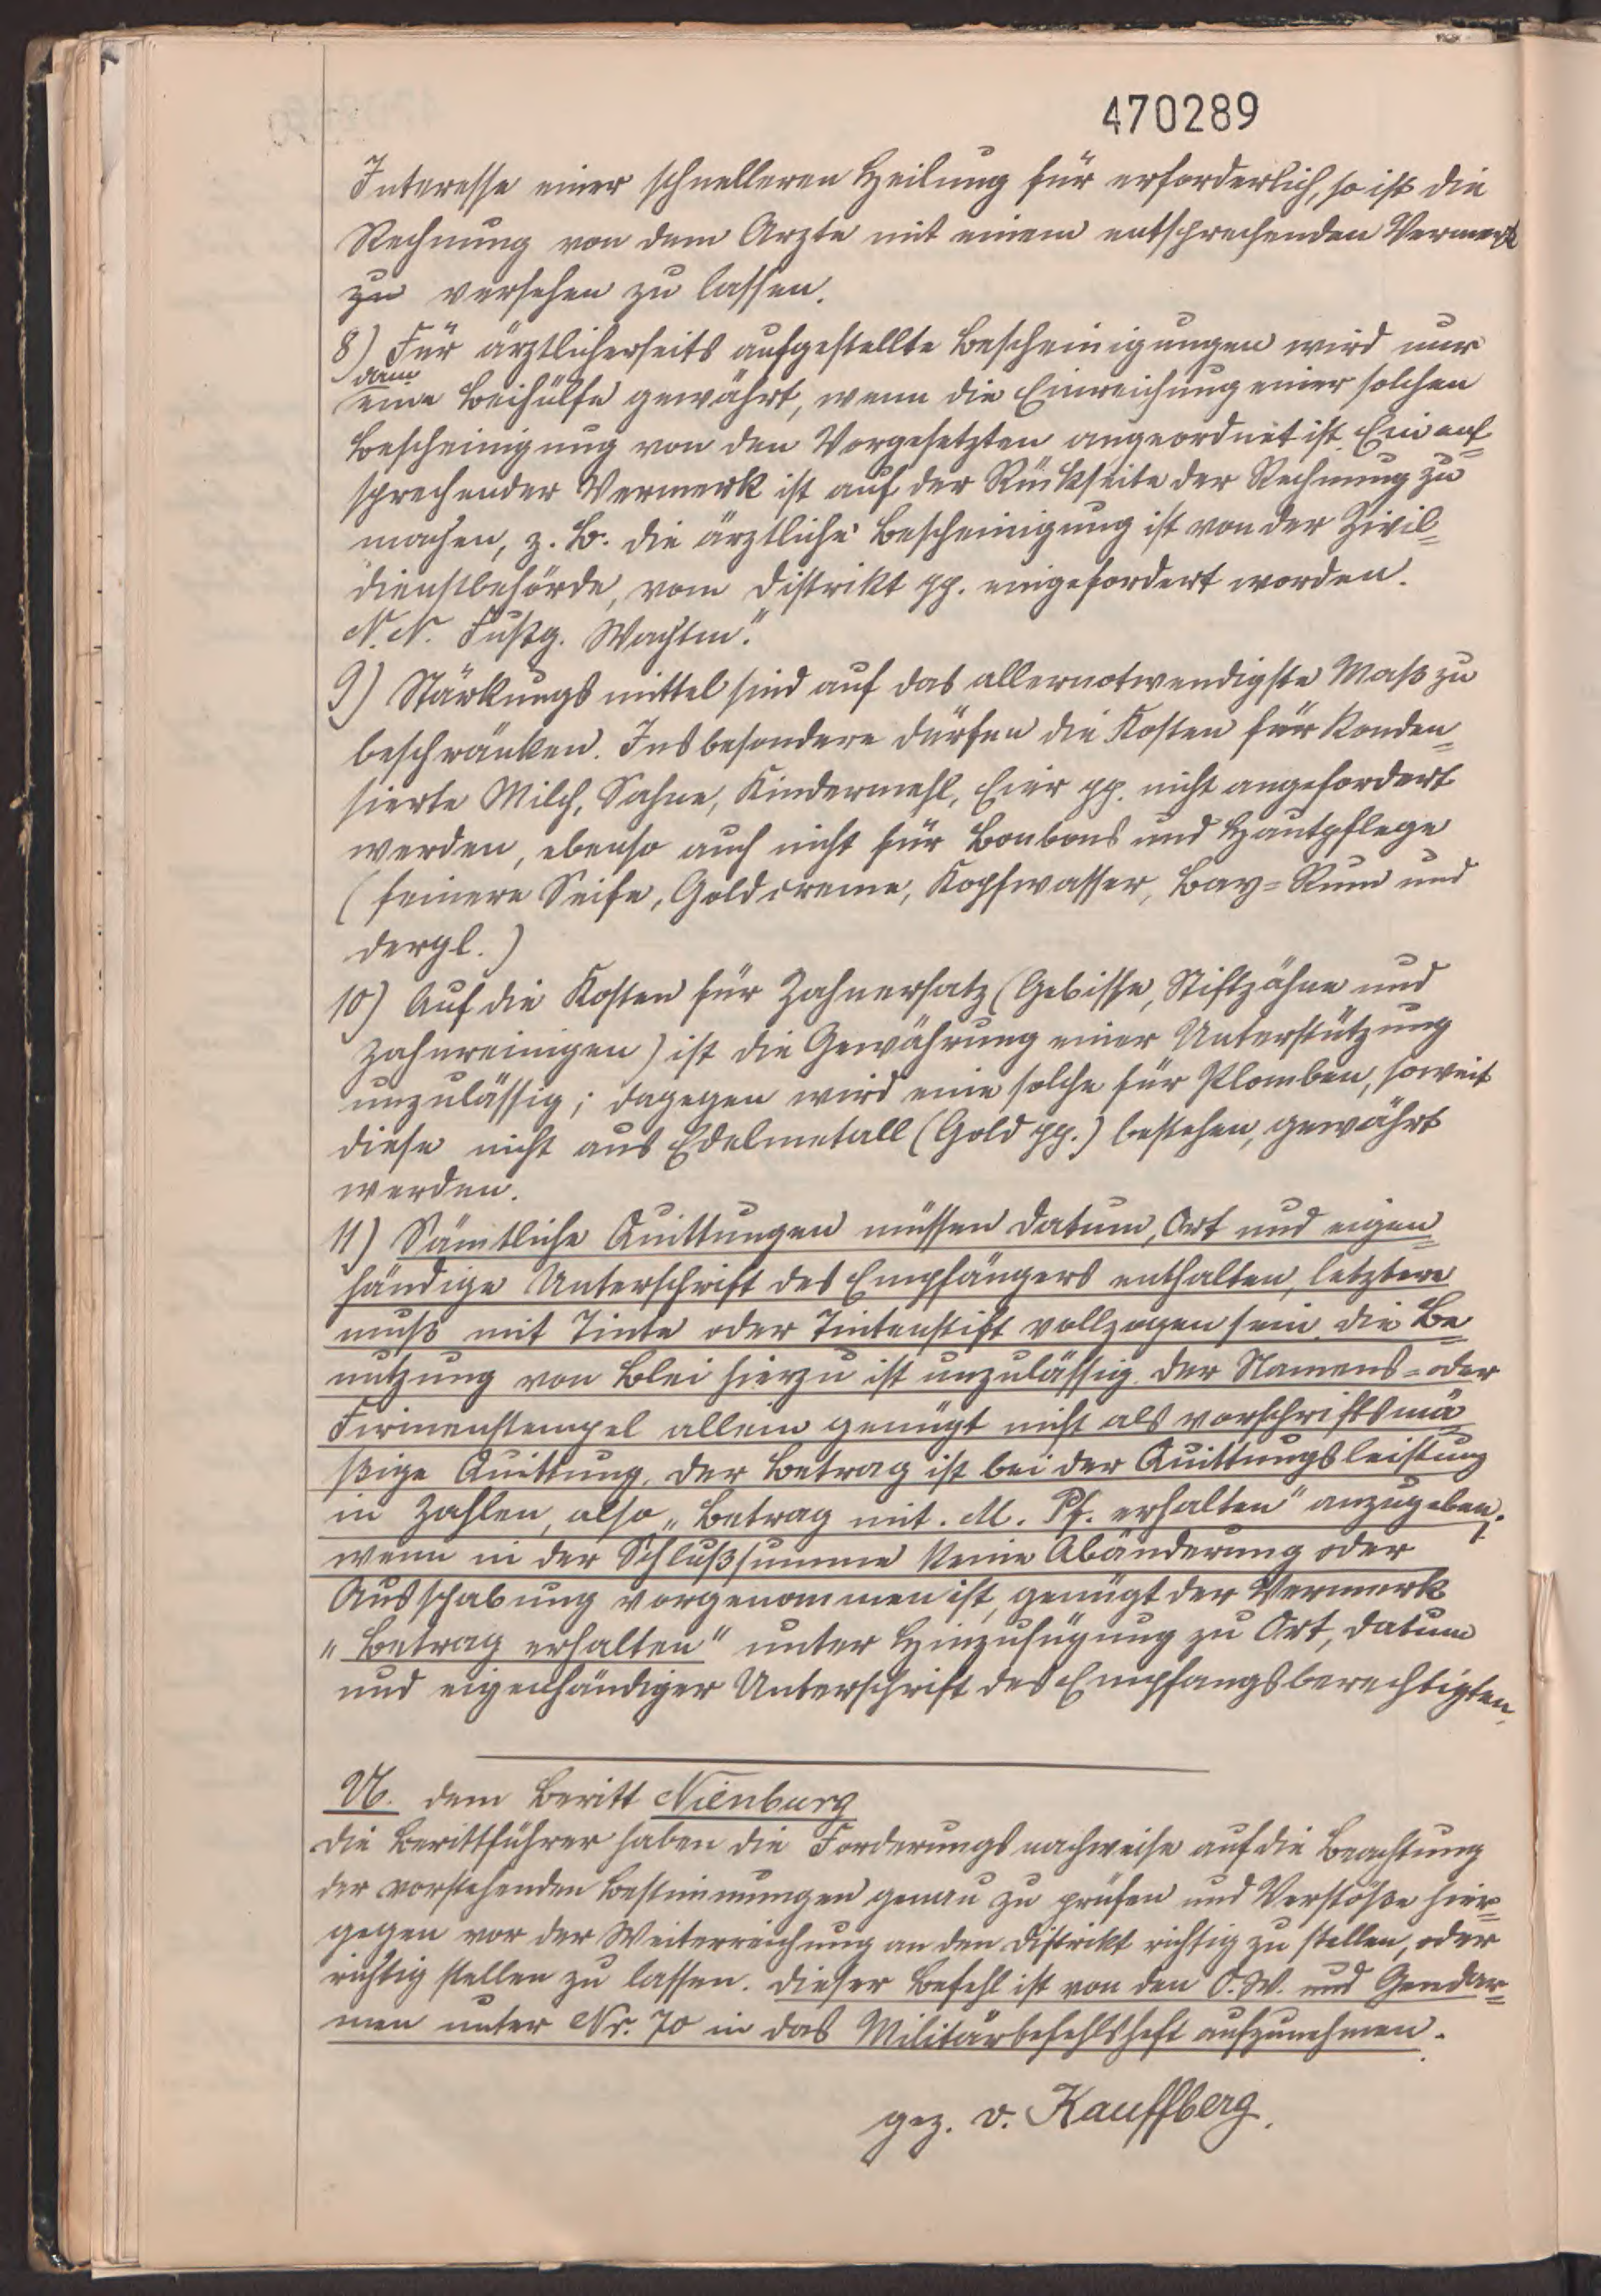 470289
Interesse einer schnelleren Heilung für erforderlich, so ist die
Rechnung von dem Arzte mit einem entsprechenden Vermerk
zu versehen zu lassen.
8) Für ärztlicherseits aufgestellte Bescheinigungen wird nur
dann
eine Beihülfe gewährt, wenn die Einreichung einer solchen
Bescheinigung von den Vorgesetzten angeordnet ist. Ein ent=
sprechender Vermerk ist auf der Rückseite der Rechnung zu
machen, z. B. die ärztliche Bescheinigung ist von der Zivil=
dienstbehörde, vom Distrikt pp. eingefordert worden.
N. N. Fußg. Wachtm."
9) Stärkungsmittel sind auf das allernotwendigste Maß zu
beschränken. Insbesondere dürfen die Kosten für konden=
sierte Milch, Sahne, Kindermehl, Eier pp. nicht angefordert
werden, ebenso auch nicht für Bonbons und Hautpflege
(feinere Seife, Goldcreme, Kopfwasser, Bay=Rum und
dergl.)
10) Auf die Kosten für Zahnersatz (Gebisse, Stiftzähne und
Zahnreinigen) ist die Gewährung einer Unterstützung
unzulässig; dagegen wird eine solche für Plomben, soweit
diese nicht aus Edelmetall (Gold pp.) bestehen, gewährt
werden.
11) Sämtliche Quittungen müssen Datum, Ort und eigen=
händige Unterschrift des Empfängers enthalten, letztere
muß mit Tinte oder Tintenstift vollzogen sein. Die Be=
nutzung von Blei hierzu ist unzulässig. Der Namens= oder
Firmenstempel allein genügt nicht als vorschriftsmä=
ßige Quittung. Der Betrag ist bei der Quittungsleistung
in Zahlen, also „Betrag mit . M. Pf. erhalten" anzugeben.
wenn in der Schlußsumme keine Abänderung oder
Ausschabung vorgenommen ist, genügt der Vermerk
„Betrag erhalten" unter Hinzufügung zu Ort, Datum
und eigenhändiger Unterschrift des Empfangsberechtigten.
U. dem Beritt Nienburg
Die Berittführer haben die Forderungsnachweise auf die Beachtung
der vorstehenden Bestimmungen genau zu prüfen und Verstöße hier=
gegen vor der Weiterreichung an den Distrikt richtig zu stellen, oder
richtig stellen zu lassen. Dieser Befehl ist von den O.W. und Gendar=
men unter Nr. 70 in das Militärbefehlsheft aufzunehmen.
gez. v. Kauffberg.